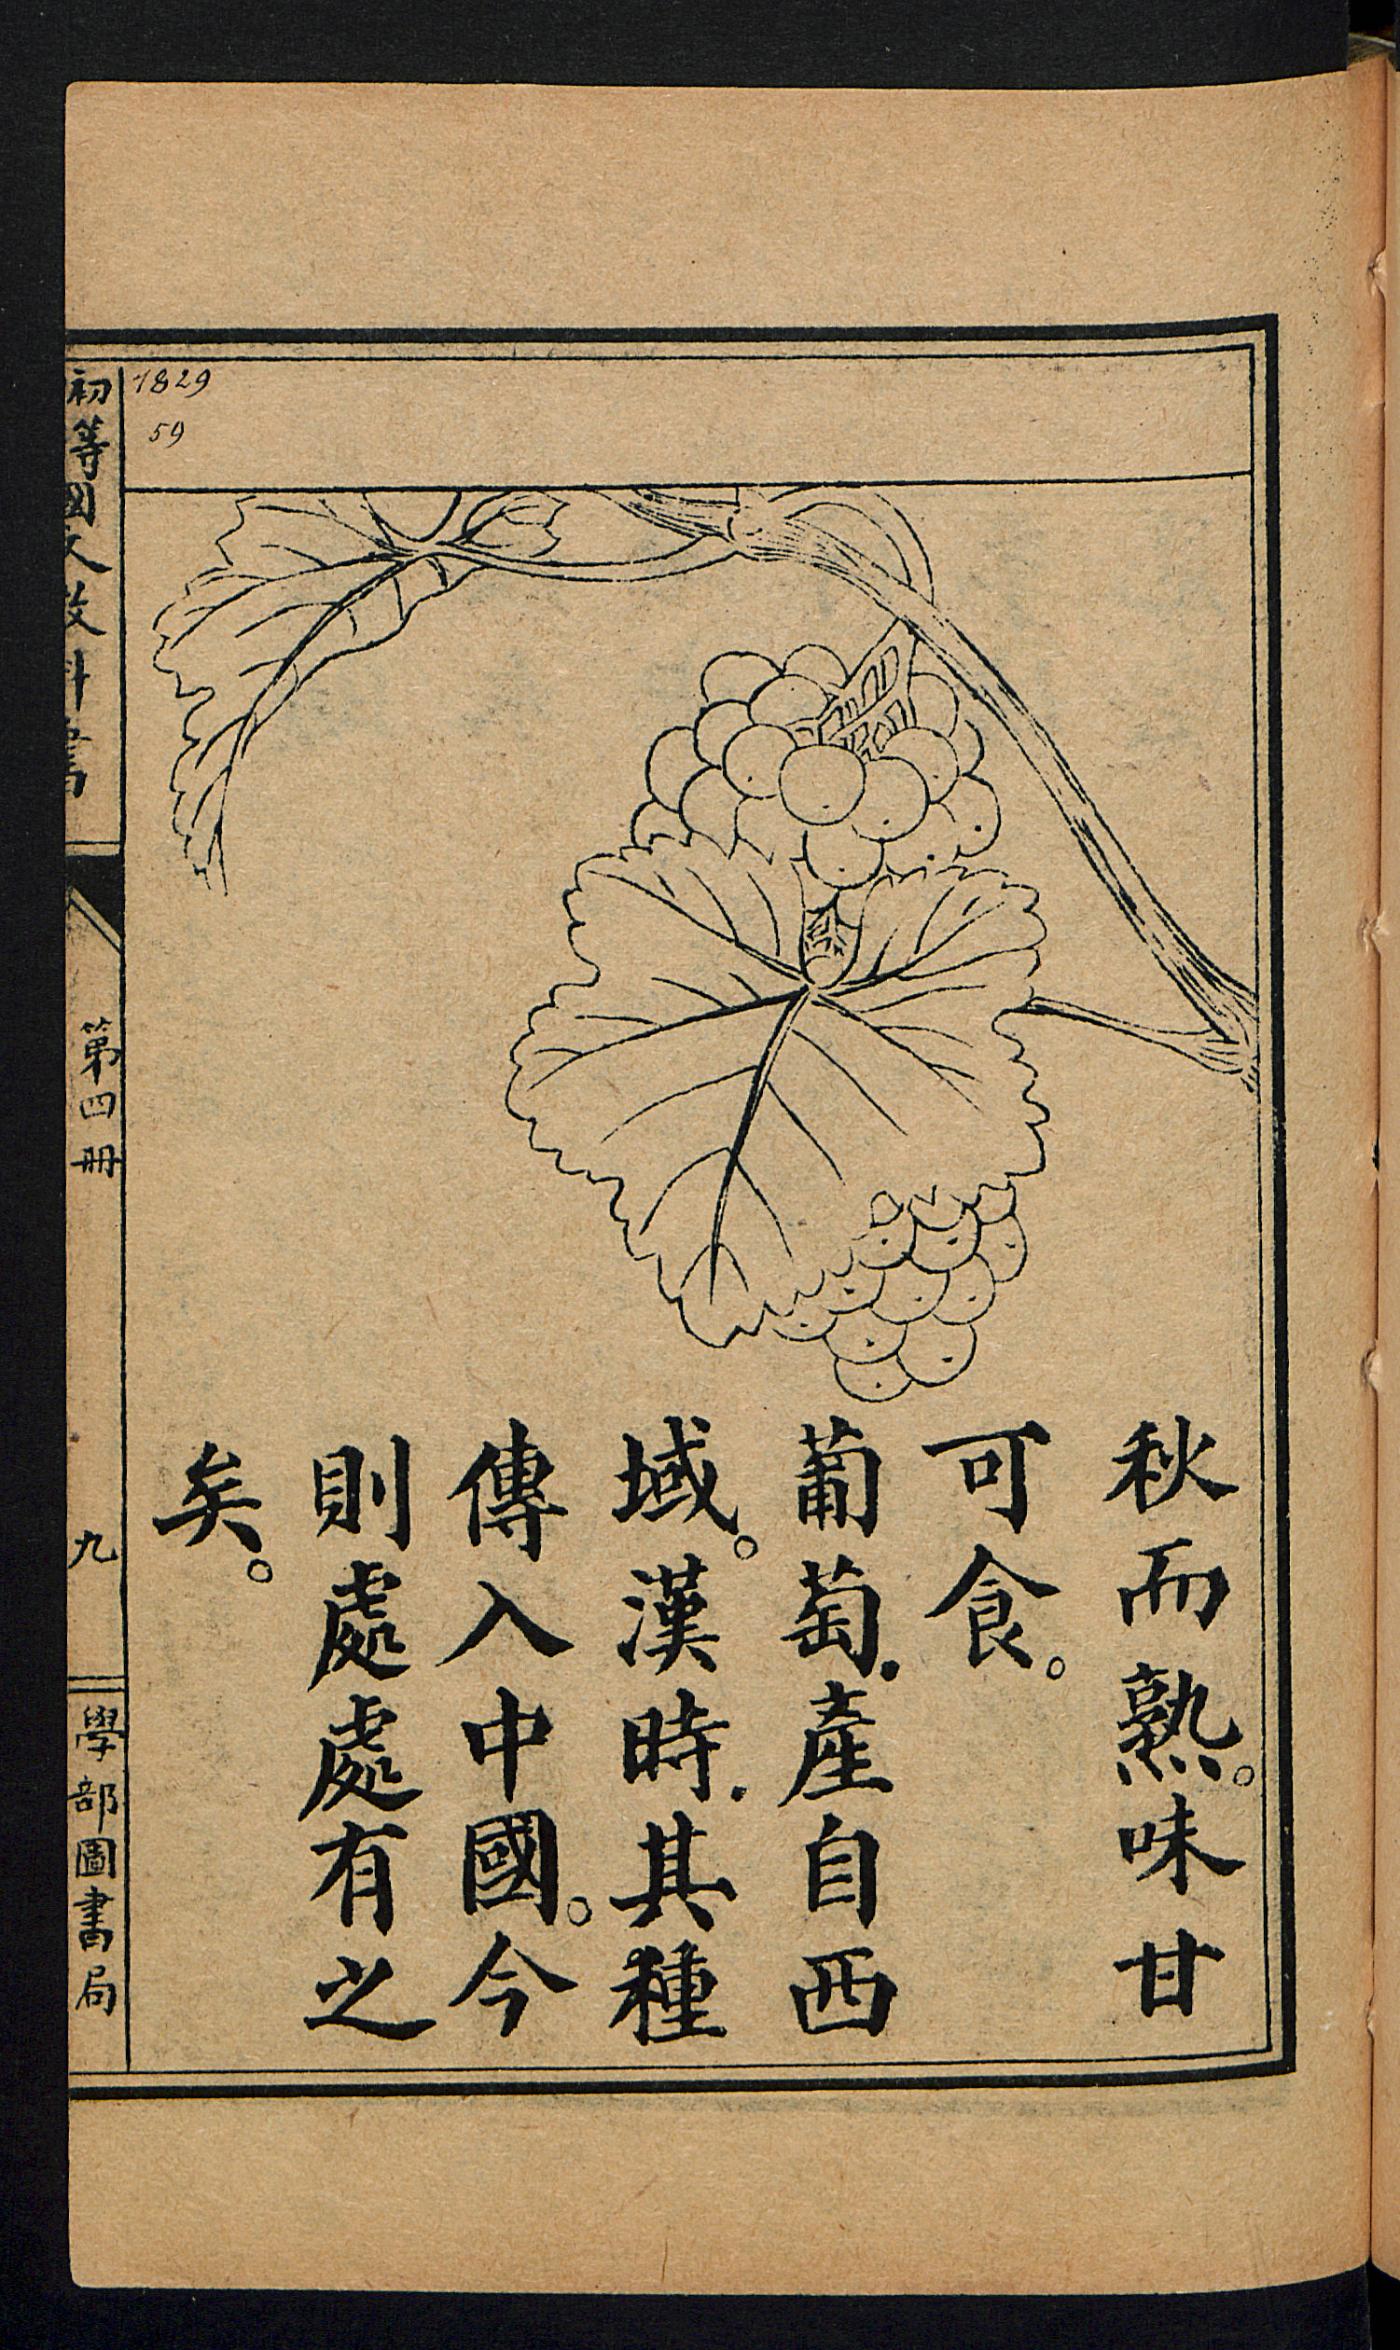 秋而熟。味甘
可食。
葡萄.產自西
域。漢時.其種
傳入中國。今
則處處有之
矣。
初等國文教科書
第四冊
九
學部圖書局
1829
59